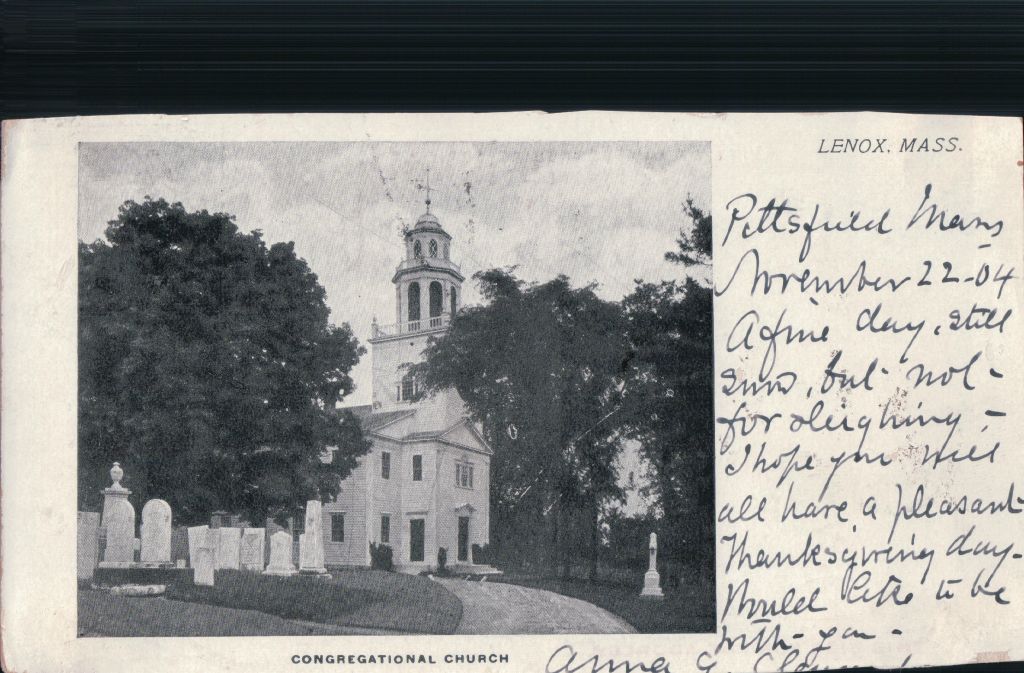 LENOX, MASS.
Pittsfield Mass
November 22-04
A fine day, still
snow, but not-
for sleighing -
I hope you will
all have a pleasant
Thanksgiving day-
Would like to be
with you -
Anna
CONGREGATIONAL CHURCH